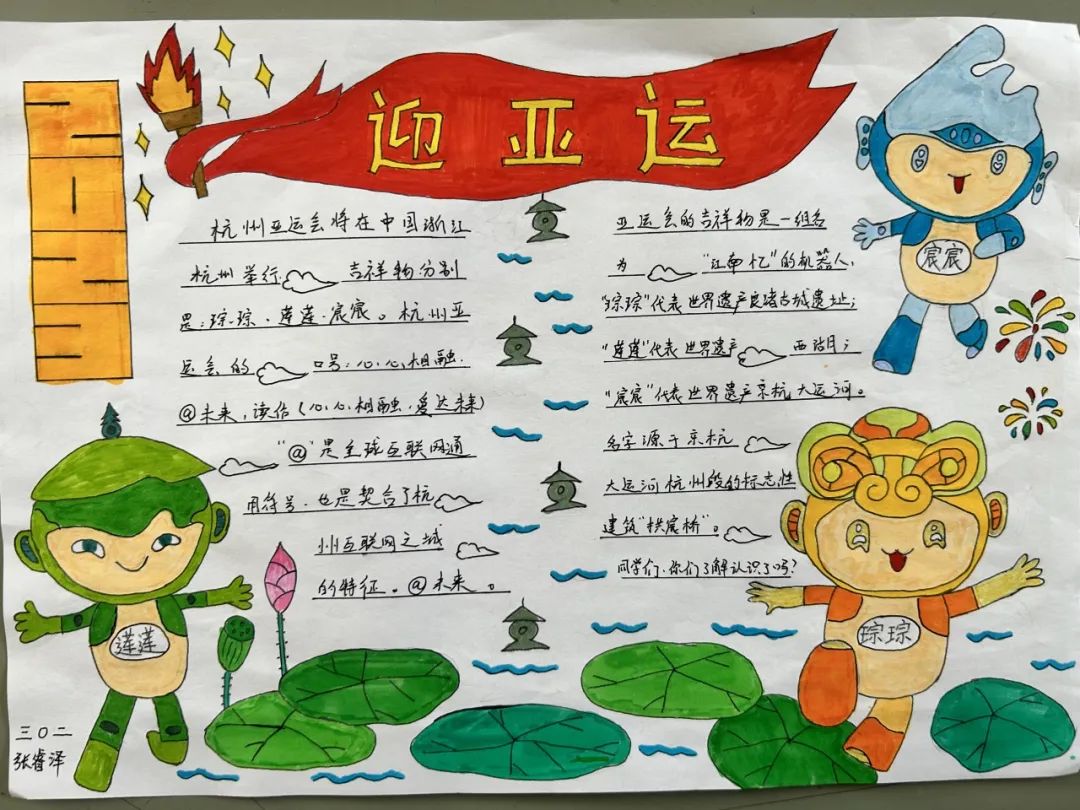 迎亚运
2023
杭州亚运会将在中国浙江
杭州举行 吉祥物分别
是:琮琮、莲莲、宸宸。杭州亚
运会的 口号:心心相融,
@未来,读作(心心相融,爱达未来)
"@"是全球互联网通
用符号,也是契合了杭
州互联网之城
的特征。@未来。
亚运会的吉祥物是一组名
为 "江南忆"的机器人,
"琮琮"代表世界遗产良渚古城遗址;
"莲莲"代表世界遗产 西湖;
"宸宸"代表世界遗产京杭大运河。
名字源于京杭
大运河杭州段的标志性
建筑"拱宸桥"。
同学们,你们了解认识了吗?
宸宸
莲莲
琮琮
三0二
张睿泽